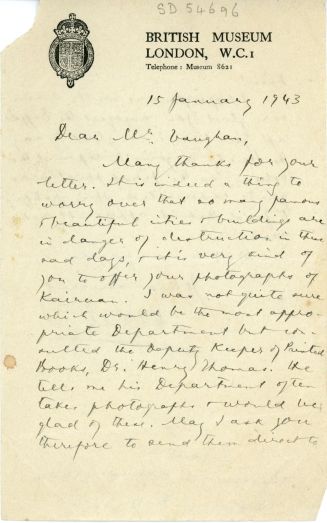 SD 54696
BRITISH MUSEUM
LONDON, W.C.1
Telephone : Museum 8621
15 January 1943
Dear Mr Vaughan,
Many thanks for your
letter. It is indeed a thing to
worry over that so many famous
& beautiful cities & buildings are
in danger of destruction in these
sad days, & it is very kind of
you to offer your photographs of
Kairwan. I was not quite sure
which would be the most appro-
priate Department but con-
sulted the Deputy Keeper of Printed
Books, Dr. Henry Thomas. He
tells me his Department often
takes photographs & would be
glad of these. May I ask you
therefore to send them direct to